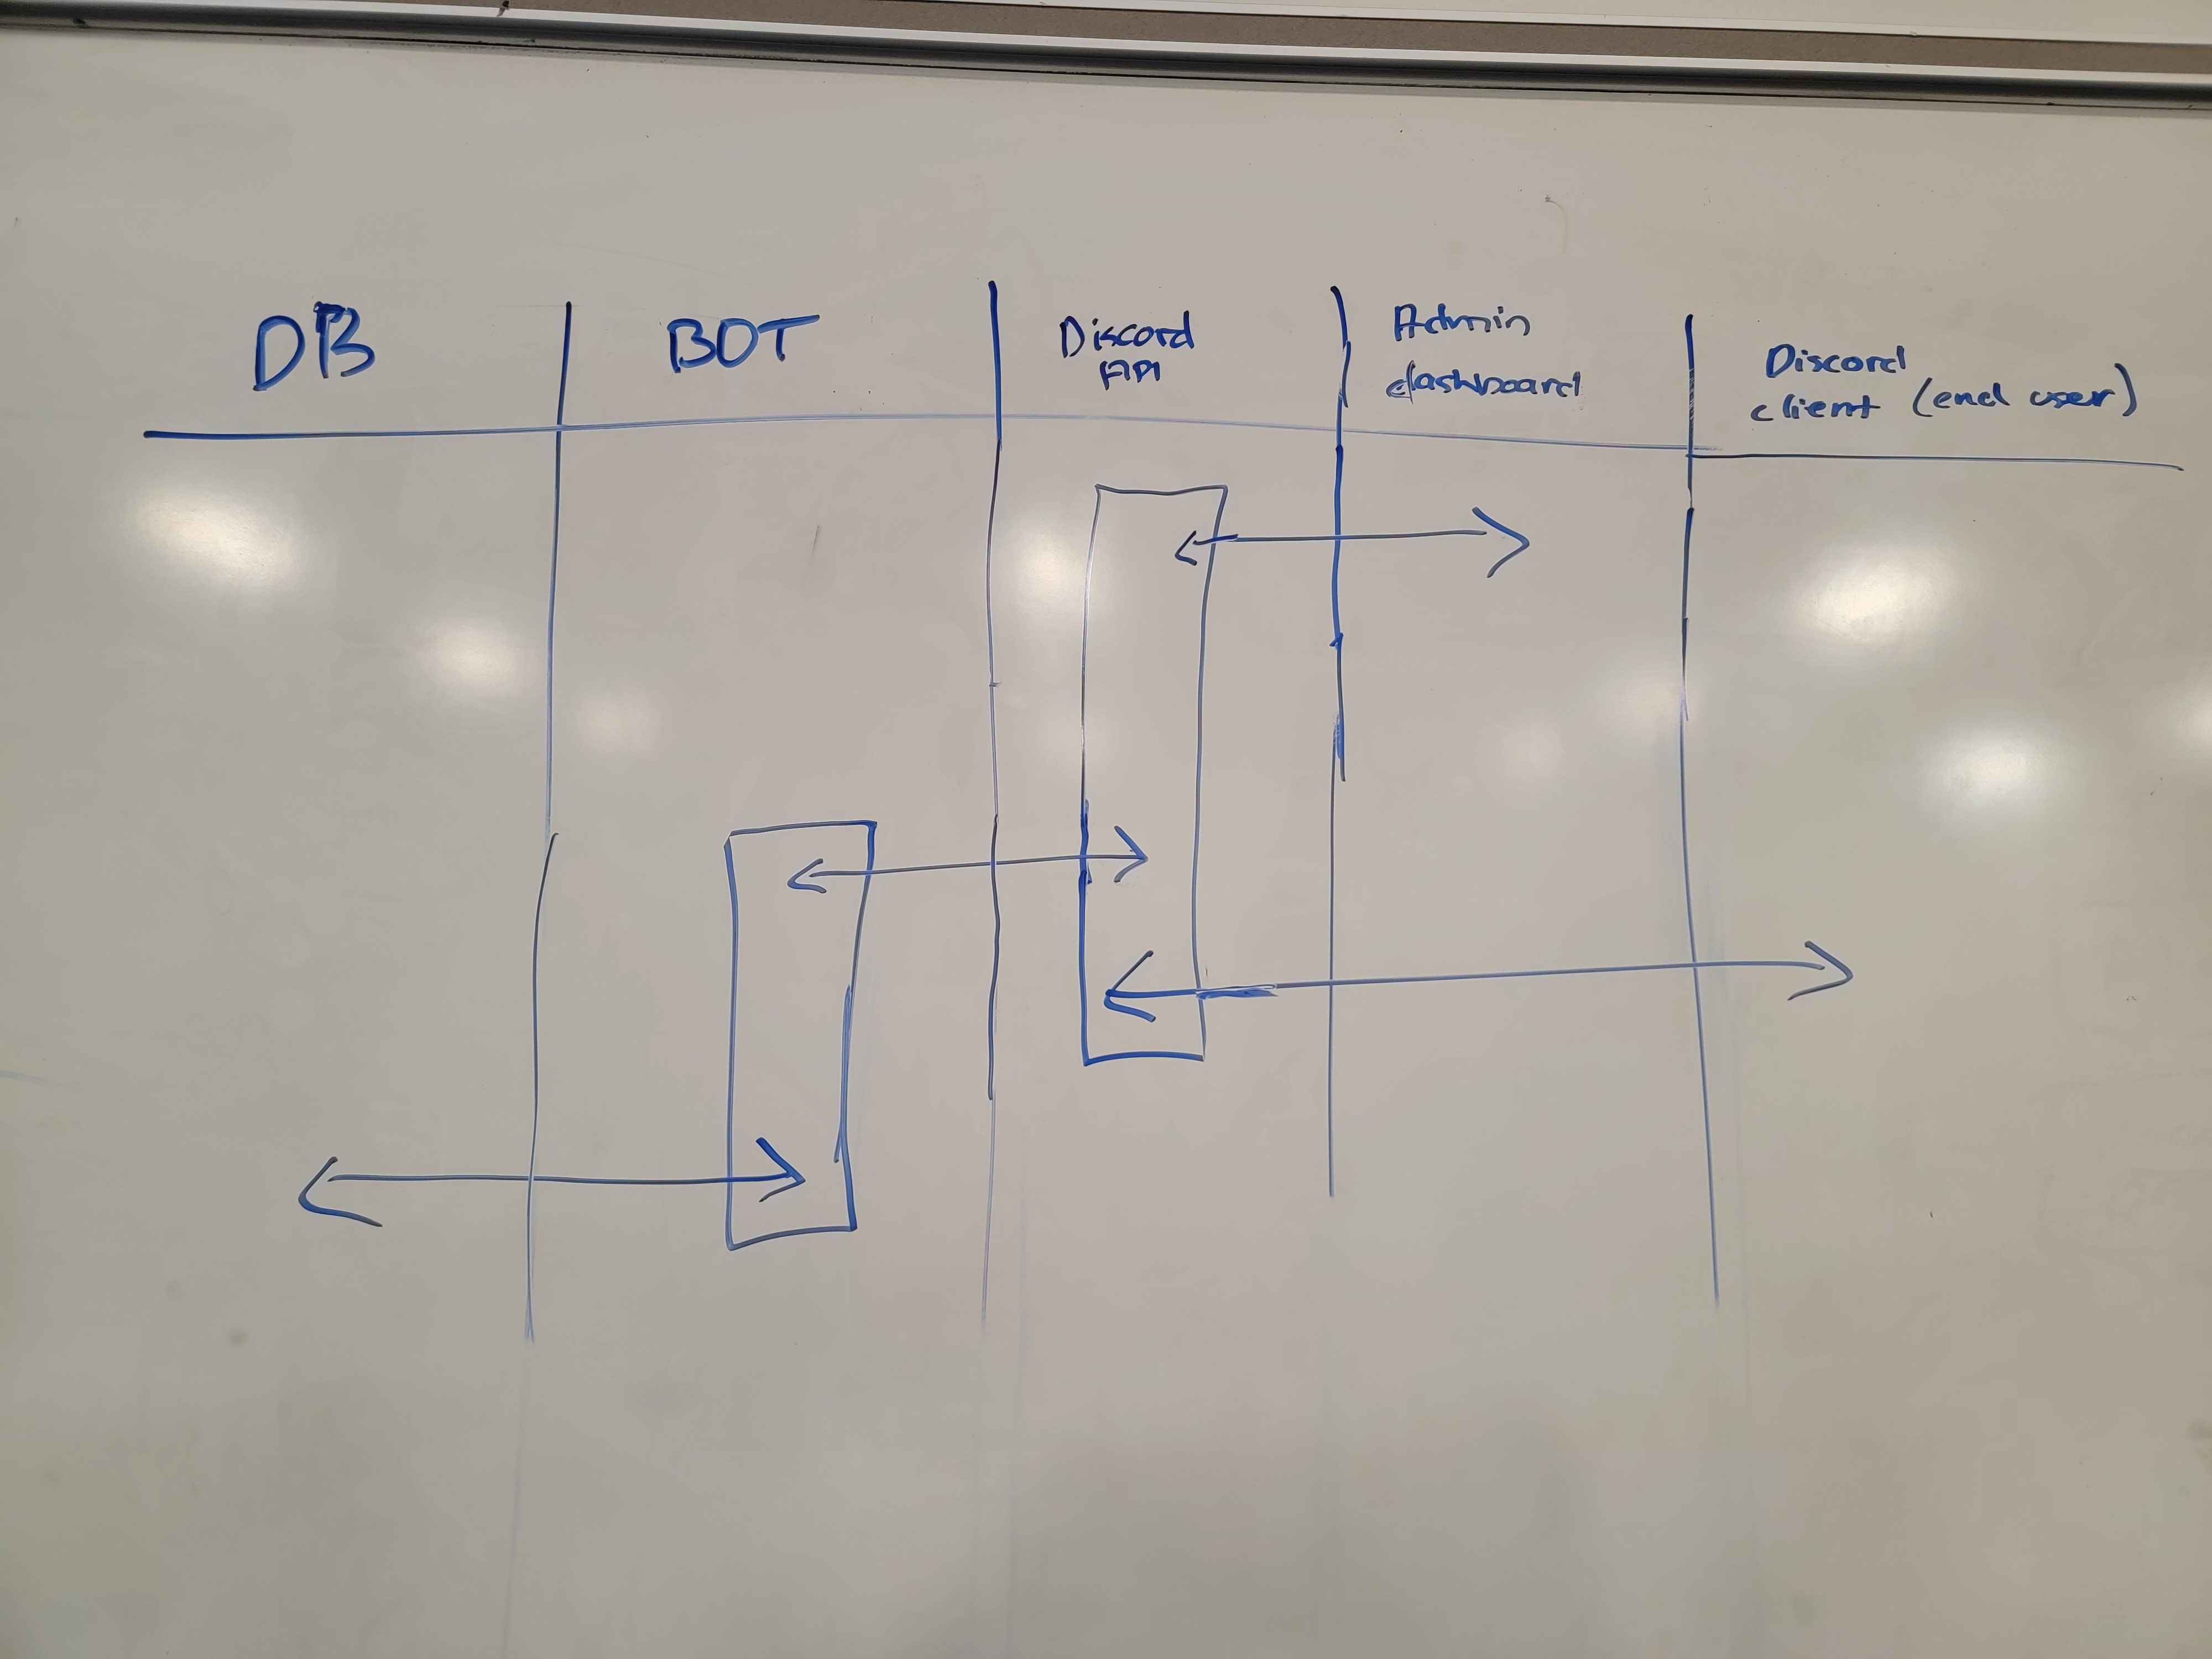 DB
BOT
Discord
API
Admin
dashboard
Discord
client (end user)